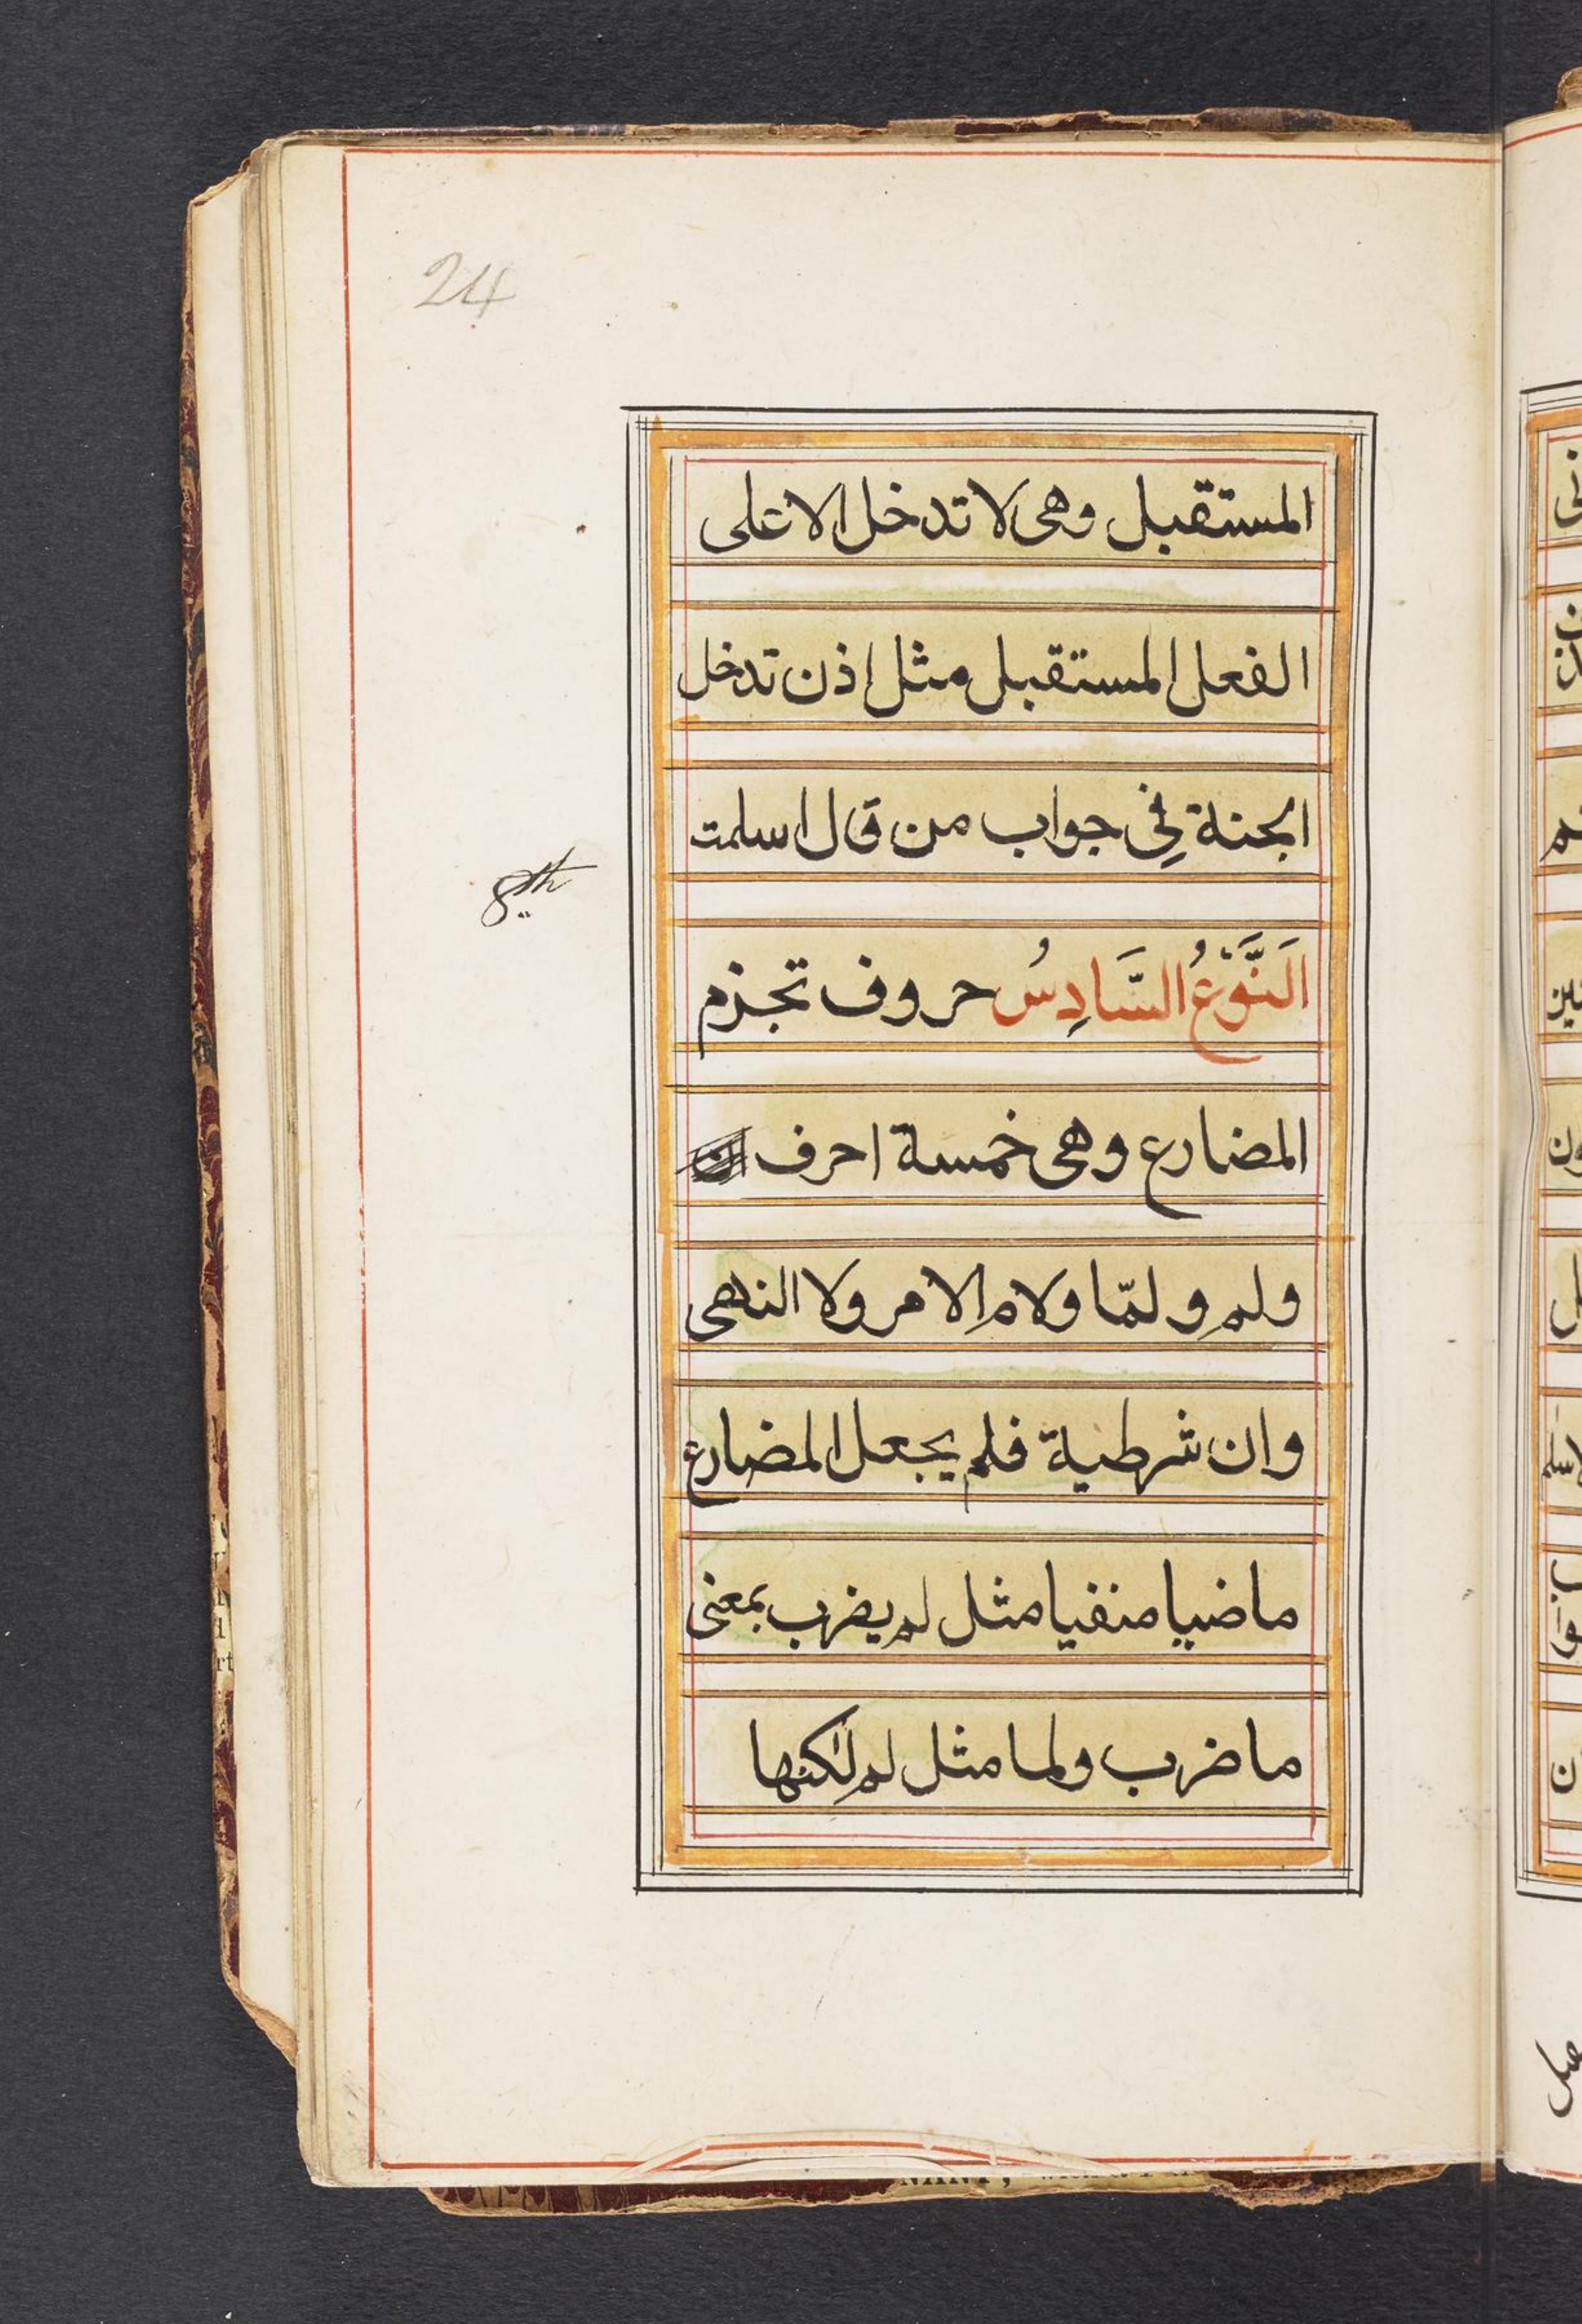 24
المستقبل وهى لا تدخل الا على
الفعل المستقبل مثل اذن تدخل
الجنة فِى جواب من قال اسلمت
8th
اَلنَّوْعُ السَّادِسُ حروف تجزم
المضارع وهى خمسة احرف
ولم ولمّا ولام الامر ولا النهى
وان شرطية فلم يجعل المضارع
ماضيا منفيا مثل لم يضرب بمعنى
ما ضرب ولما مثل لم لٰكنها